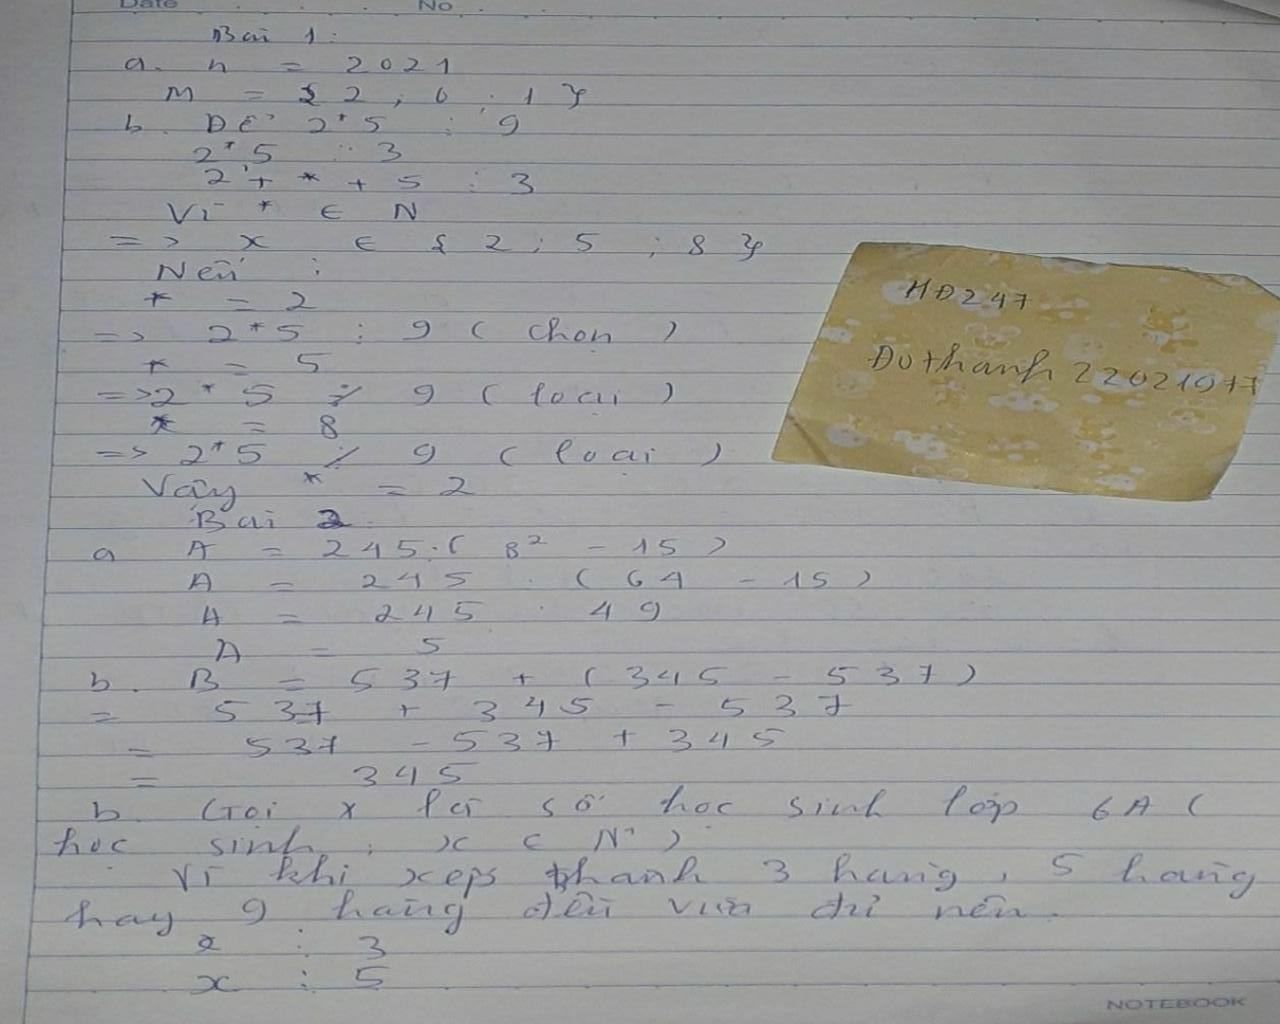 Date No
Bài 1:
a. n = 2021
M = { 2 ; 0 ; 1 }
b. Để 2*5 ⋮ 9
2*5 ⋮ 3
2 + * + 5 ⋮ 3
Vì * ∈ N
=> x ∈ { 2 ; 5 ; 8 }
Nếu :
* = 2
=> 2*5 ⋮ 9 ( chọn )
* = 5
=> 2*5 ⋮̸ 9 ( loại )
* = 8
=> 2*5 ⋮̸ 9 ( loại )
Vậy * = 2
Bài 2
a A = 245 : ( 8² - 15 )
A = 245 : ( 64 - 15 )
A = 245 : 49
A = 5
b. B = 537 + ( 345 - 537 )
= 537 + 345 - 537
= 537 - 537 + 345
= 345
b. Gọi x là số học sinh lớp 6A (
học sinh ; x ∈ N* )
Vì khi xếp thành 3 hàng, 5 hàng
hay 9 hàng đều vừa đủ nên.
x ⋮ 3
x ⋮ 5
HĐ247
Đuthanh 22021977
NOTEBOOK